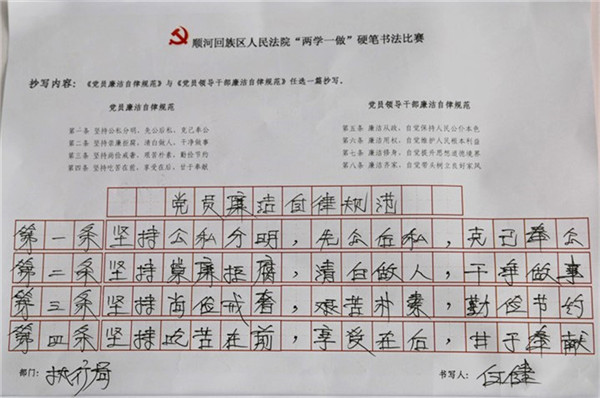 顺河回族区人民法院“两学一做”硬笔书法比赛
抄写内容：《党员廉洁自律规范》与《党员领导干部廉洁自律规范》任选一篇抄写。
党员廉洁自律规范
第一条 坚持公私分明，先公后私，克己奉公
第二条 坚持崇廉拒腐，清白做人，干净做事
第三条 坚持尚俭戒奢，艰苦朴素，勤俭节约
第四条 坚持吃苦在前，享受在后，甘于奉献
党员领导干部廉洁自律规范
第五条 廉洁从政，自觉保持人民公仆本色
第六条 廉洁用权，自觉维护人民根本利益
第七条 廉洁修身，自觉提升思想道德境界
第八条 廉洁齐家，自觉带头树立良好家风
党员廉洁自律规范
第一条坚持公私分明，先公后私，克己奉公
第二条坚持崇廉拒腐，清白做人，干净做事
第三条坚持尚俭戒奢，艰苦朴素，勤俭节约
第四条坚持吃苦在前，享受在后，甘于奉献
部门：执行局 书写人：